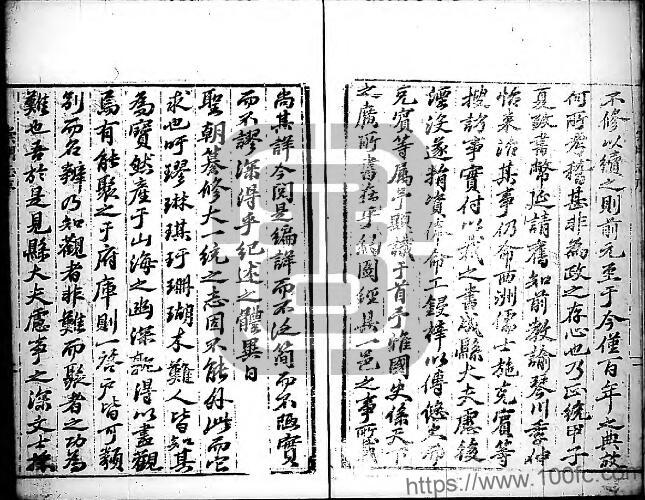 不修以續之則前元至于今僅百年之典故
何所考稽甚非為政之存心也乃正統甲子
夏致書幣延請舊知前教諭琴川季仲
怡來涖其事仍命西洲儒士施克賓等
搜訪事實付以裁之書成縣大夫慮後
湮沒遂捐資俸命工鋟梓以傳悠久而
克賓等屬予題識于首予惟國史係天下
之廣所書在乎綱圖經具一邑之事所載
尚其詳今閱是編詳而不泛簡而不陋實
而不謬深得乎紀述之體異日
聖朝纂修大一統之志固不能外此而它
求也吁璆琳琪玗珊瑚木難人皆知其
為寶然產于山海之幽深孰得以盡觀
焉有能聚之于府庫則一啓戶皆可類
別而名辨乃知觀者非難而聚者之功為
難也吾於是見縣大夫慮事之深文士採
https://www.100fc.com